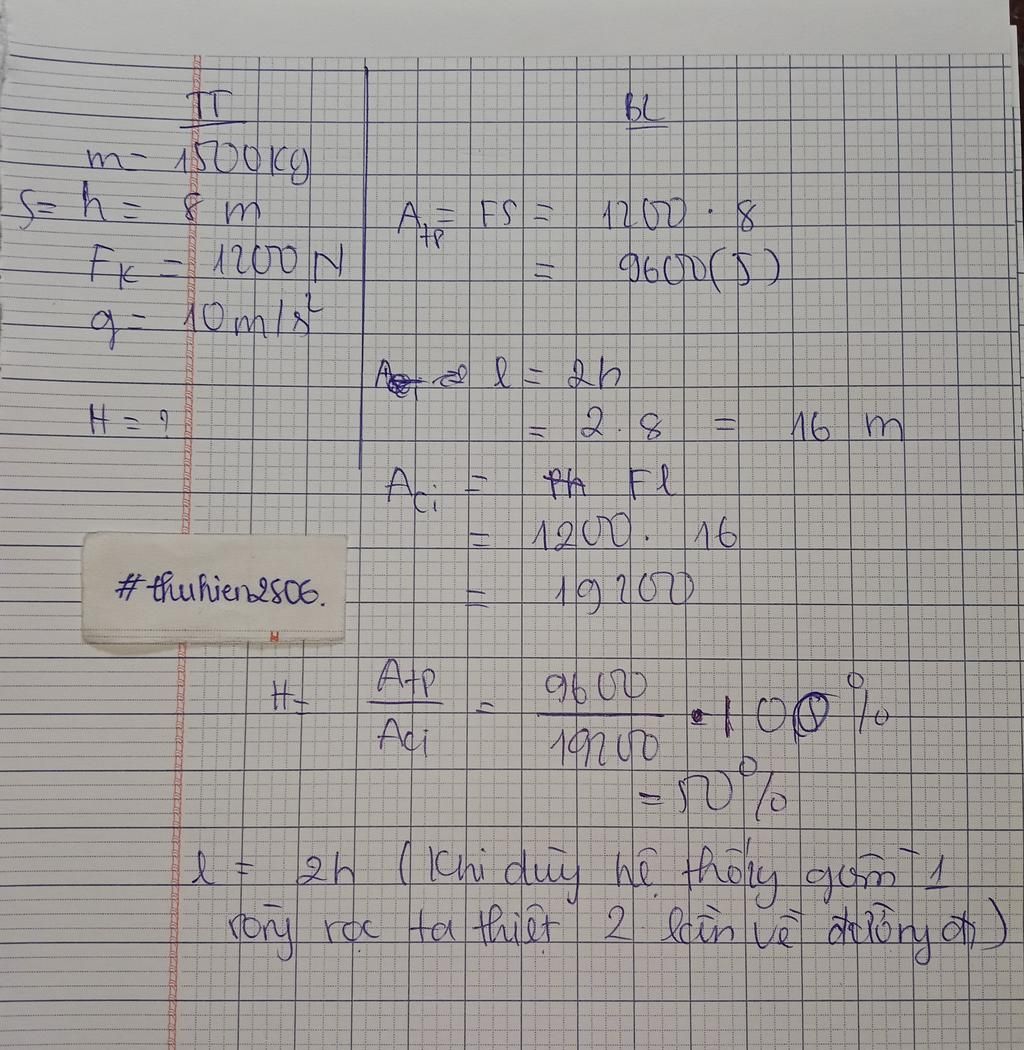 TT
m = 1500kg
S = h = 8 m
F_K = 1200 N
g = 10 m/s²
H = ?
BL
A_tp = FS = 1200 . 8
= 9600 (J)
l = 2h
= 2 . 8 = 16 m
A_ci = Fl
= 1200 . 16
= 19200
#thuhien2806.
H = A_tp / A_ci = 9600 / 19200 . 100 %
= 50 %
l = 2h (Khi dùg hệ thốg gồm 1
ròg rọc ta thiệt 2 lần về đườg đi)